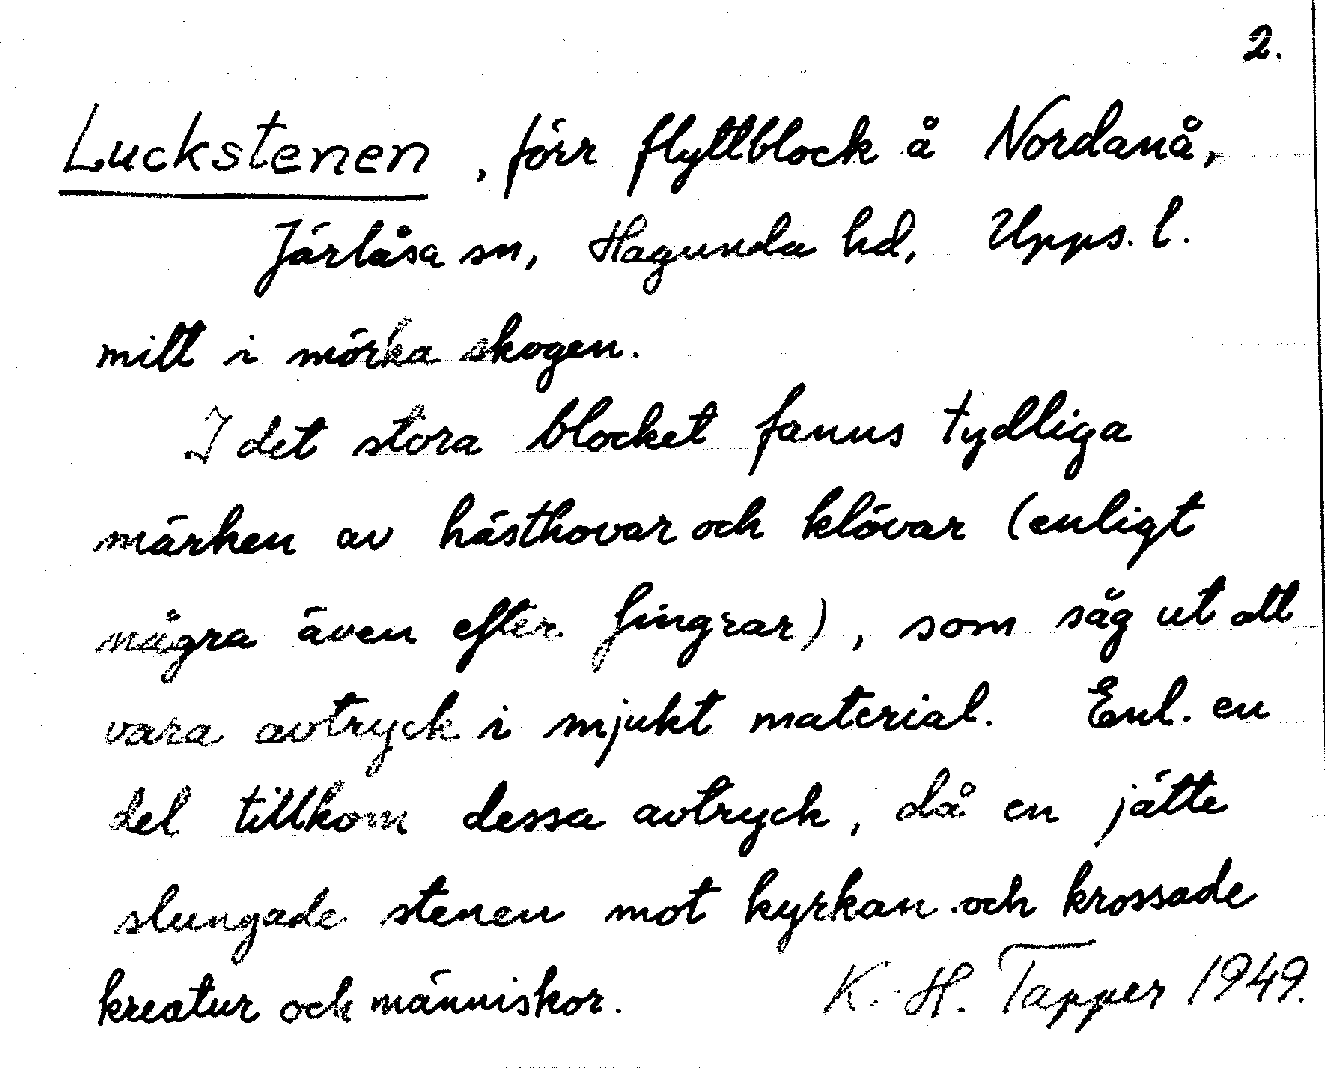 2.
Luckstenen, förr flyttblock å Nordanå,
Järlåsa sn, Hagunda hd, Upps. l.
mitt i mörka skogen.
I det stora blocket fanns tydliga
märken av hästhovar och klövar (enligt
några även efter fingrar), som såg ut att
vara avtryck i mjukt material. Enl. en
del tillkom dessa avtryck, då en jätte
slungade stenen mot kyrkan och krossade
kreatur och människor. K.-H. Tapper 1949.